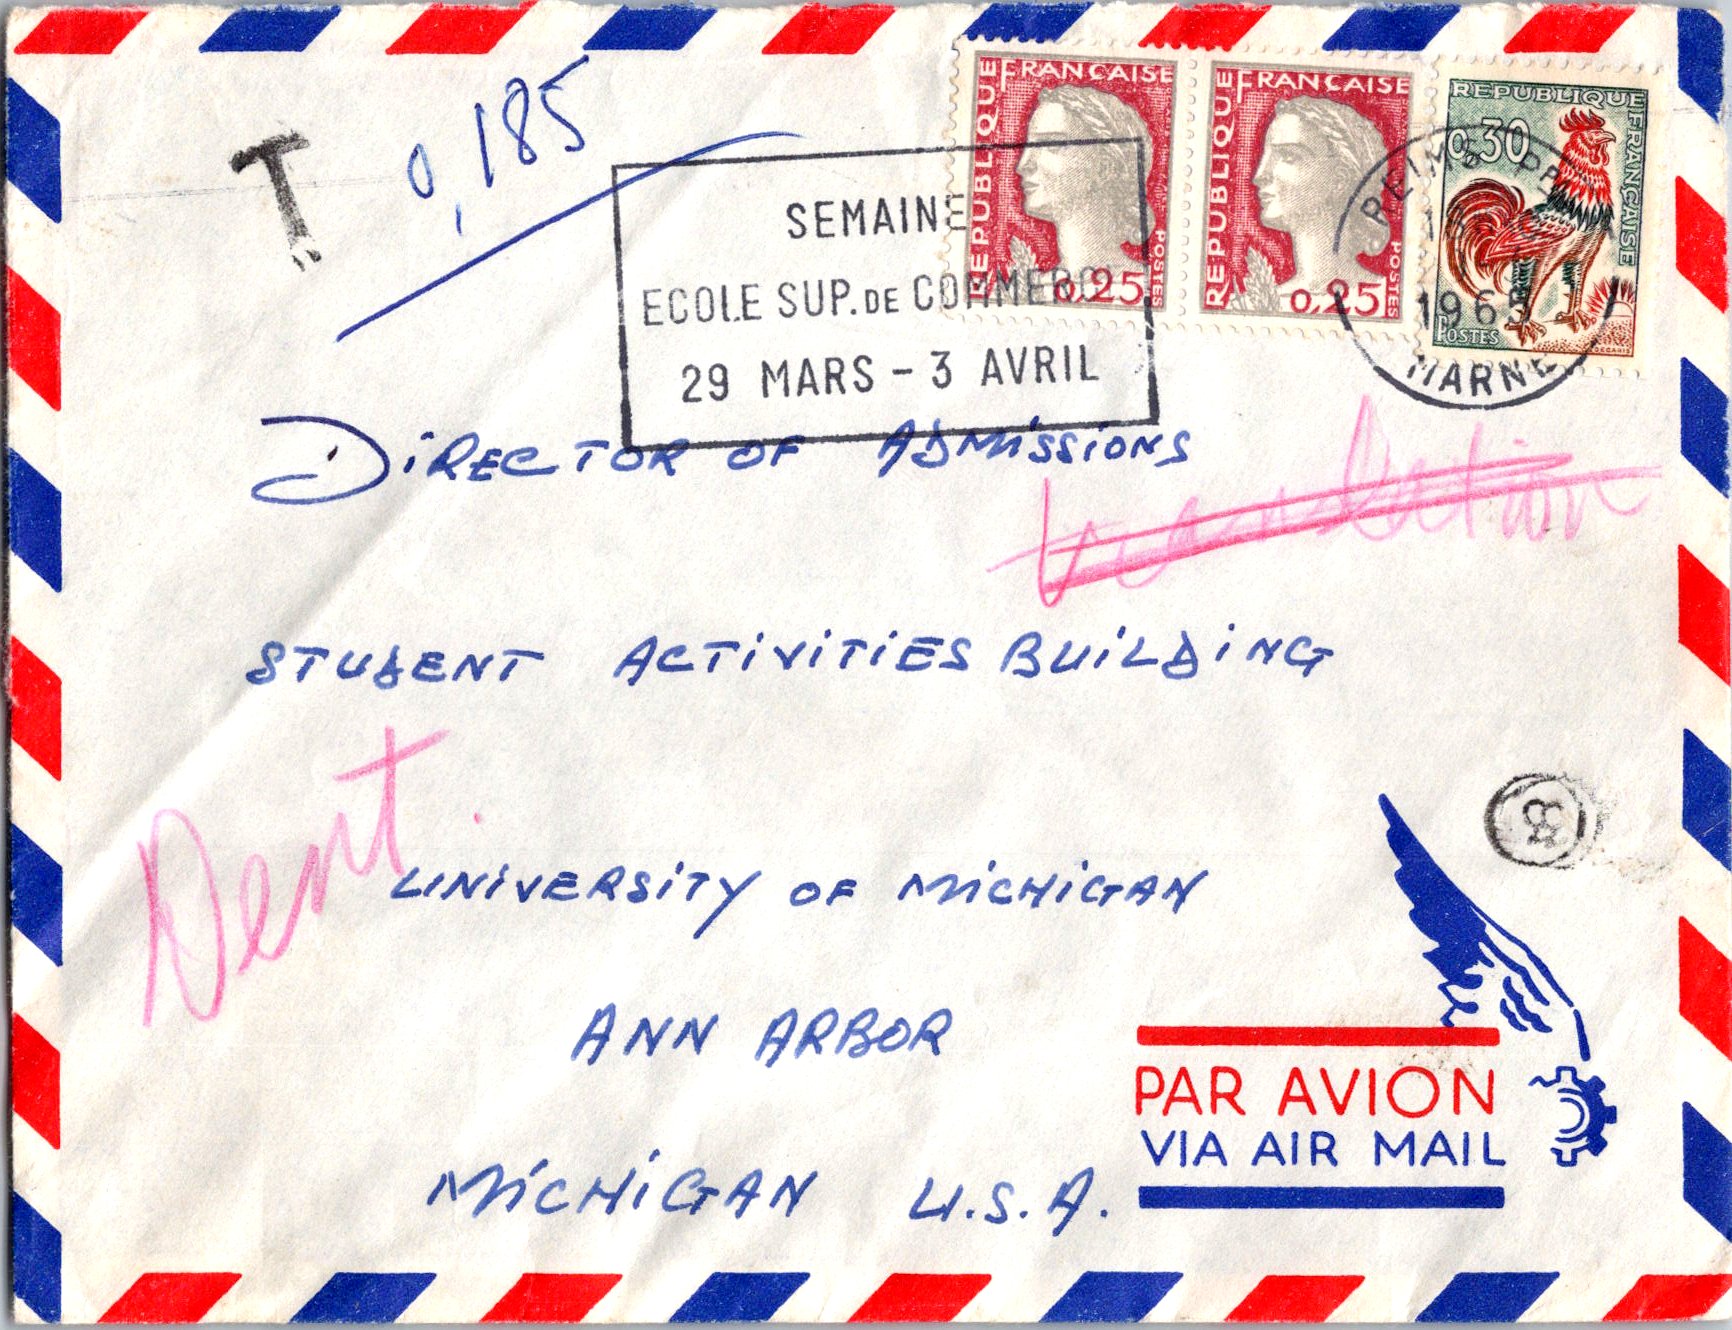 T
0,185
RÉPUBLIQUE FRANÇAISE
0,25
POSTES
RÉPUBLIQUE FRANÇAISE
0,25
POSTES
REPUBLIQUE FRANÇAISE
0,30
POSTES
DECARIS
REIMS
18
1965
MARNE
SEMAINE
ECOLE SUP. DE COMMERCE
29 MARS - 3 AVRIL
DIRECTOR OF ADMISSIONS
translation
STUDENT ACTIVITIES BUILDING
Dent.
UNIVERSITY OF MICHIGAN
ANN ARBOR
MICHIGAN U.S.A.
PAR AVION
VIA AIR MAIL